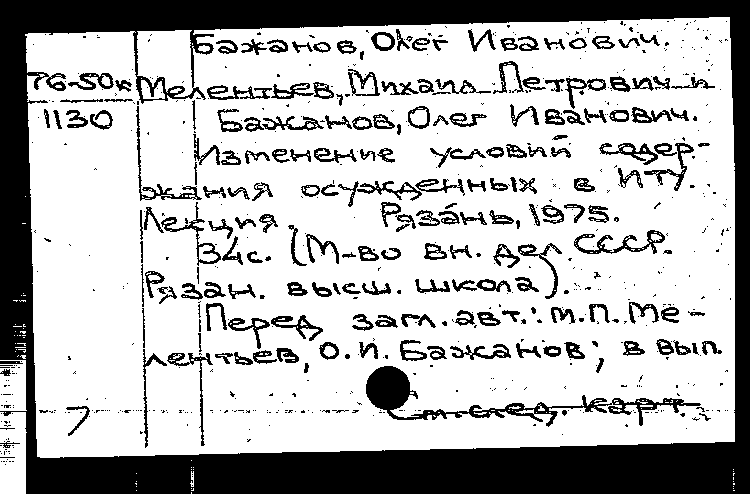 Бажанов, Олег Иванович.
76-50к Мелентьев, Михаил Петрович и
1130 Бажанов, Олег Иванович.
Изменение условий содер-
жания осужденных в ИТУ.
Лекция. Рязань, 1975.
34с. (М-во вн. дел СССР.
Рязан. высш. школа).
Перед загл. авт.: М.П. Ме-
лентьев, О.И. Бажанов; в вып.
См. след. карт.